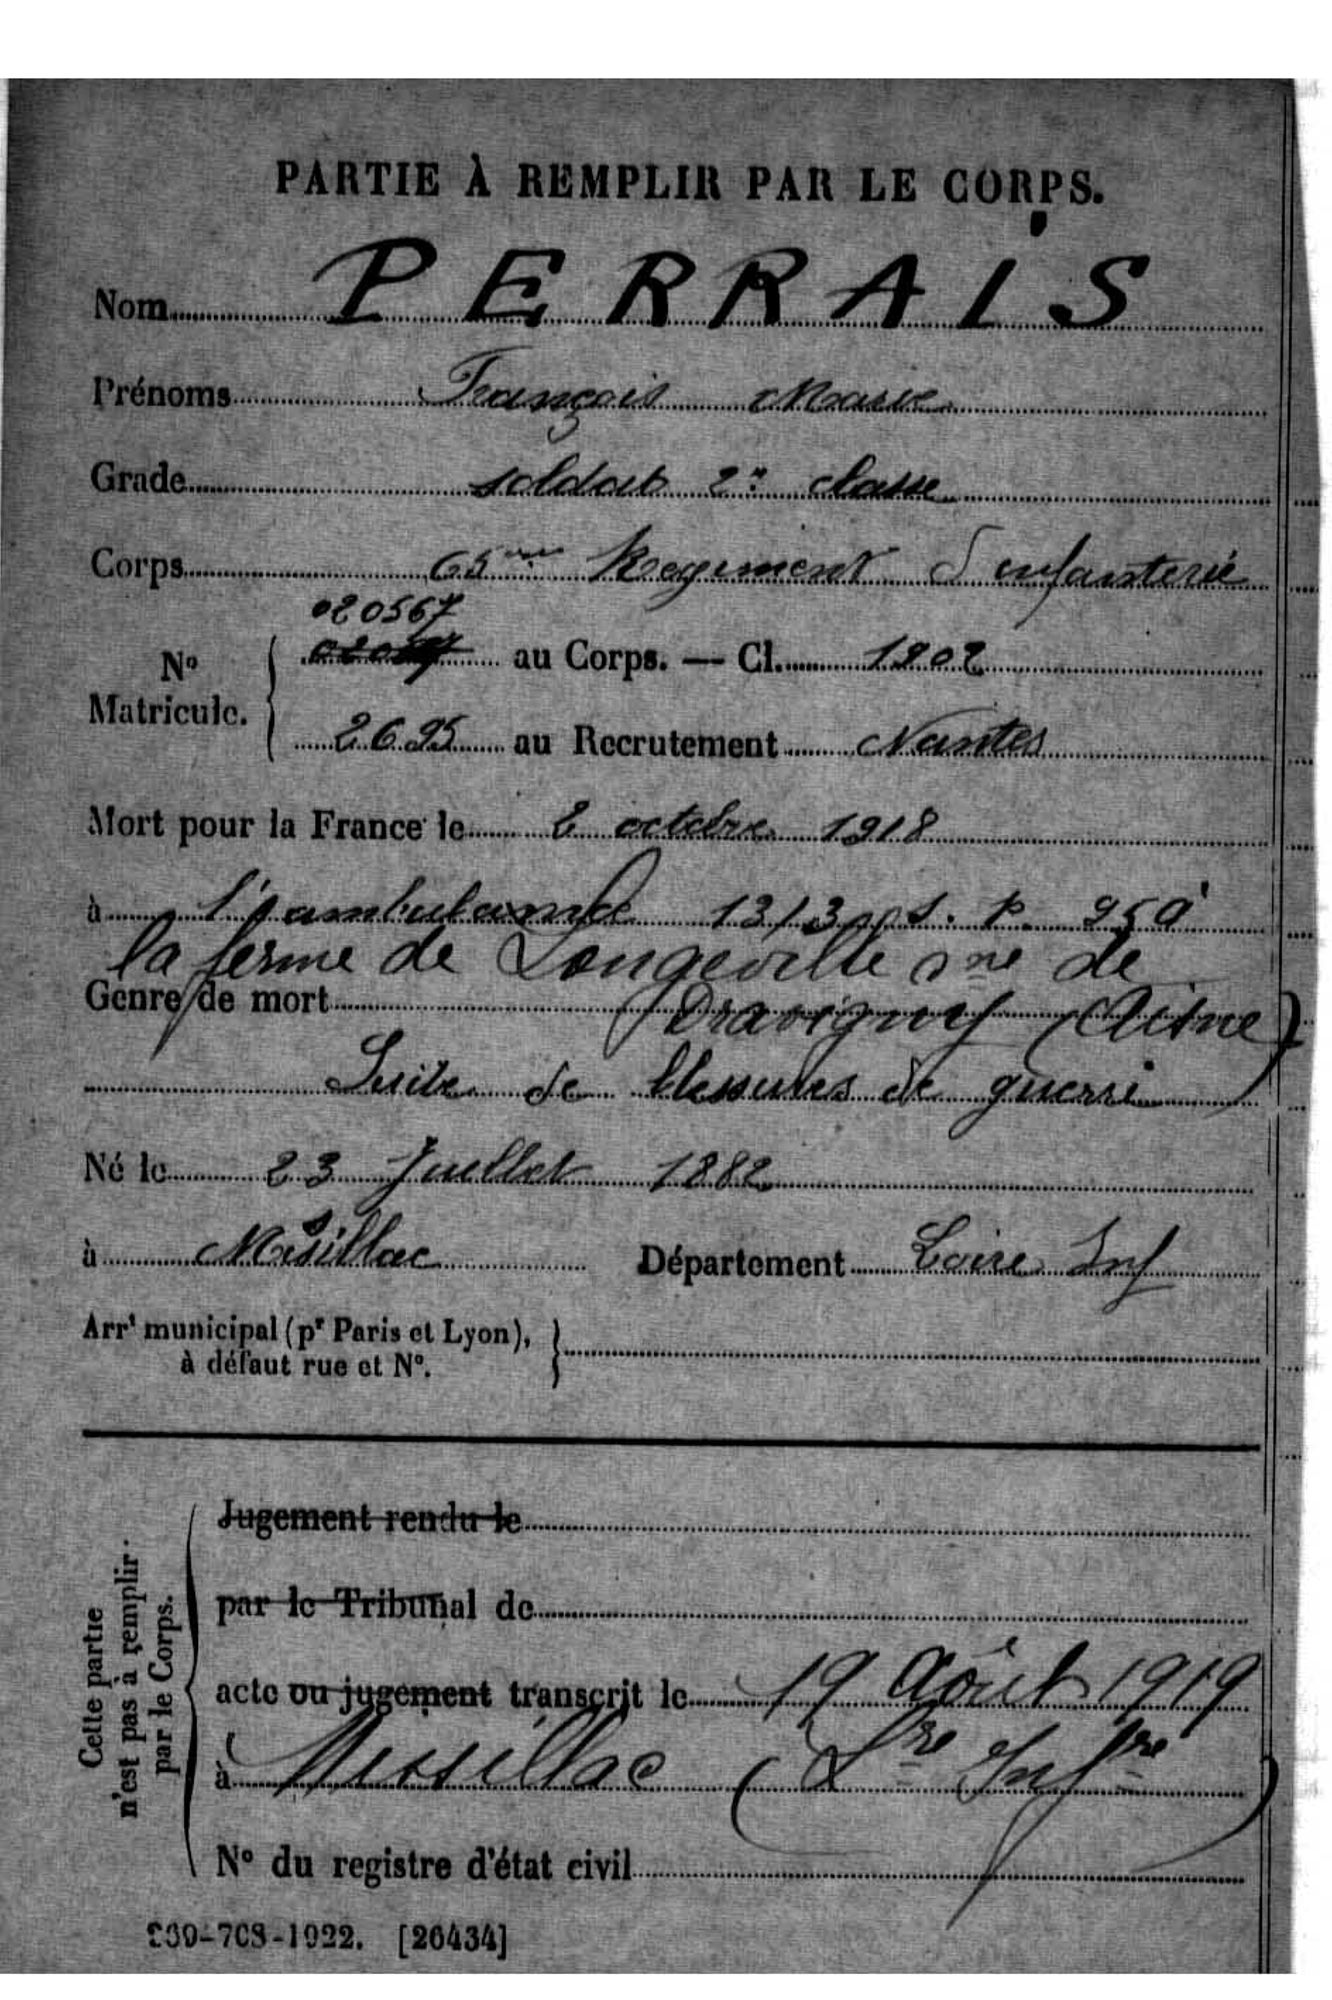 PARTIE À REMPLIR PAR LE CORPS.
Nom PERRAIS
Prénoms François Marie
Grade soldat 2e classe
Corps 65me Regiment d'infanterie
020567
Nº Matricule. au Corps. — Cl. 1902
2695 au Recrutement Nantes
Mort pour la France le 2 octobre 1918
à l'ambulance 13/3 s. p. 959
la ferme de Longeville de
Genre de mort Dravigny (Aisne)
Suite de blessures de guerre
Né le 23 Juillet 1882
à Missillac Département Loire Inf
Arrt municipal (pr Paris et Lyon),
à défaut rue et Nº.
Cette partie
n'est pas à remplir
par le Corps.
Jugement rendu le
par le Tribunal de
acte ou jugement transcrit le 19 Août 1919
à Missillac (Lre Infre)
Nº du registre d'état civil
-708-1922. [26434]